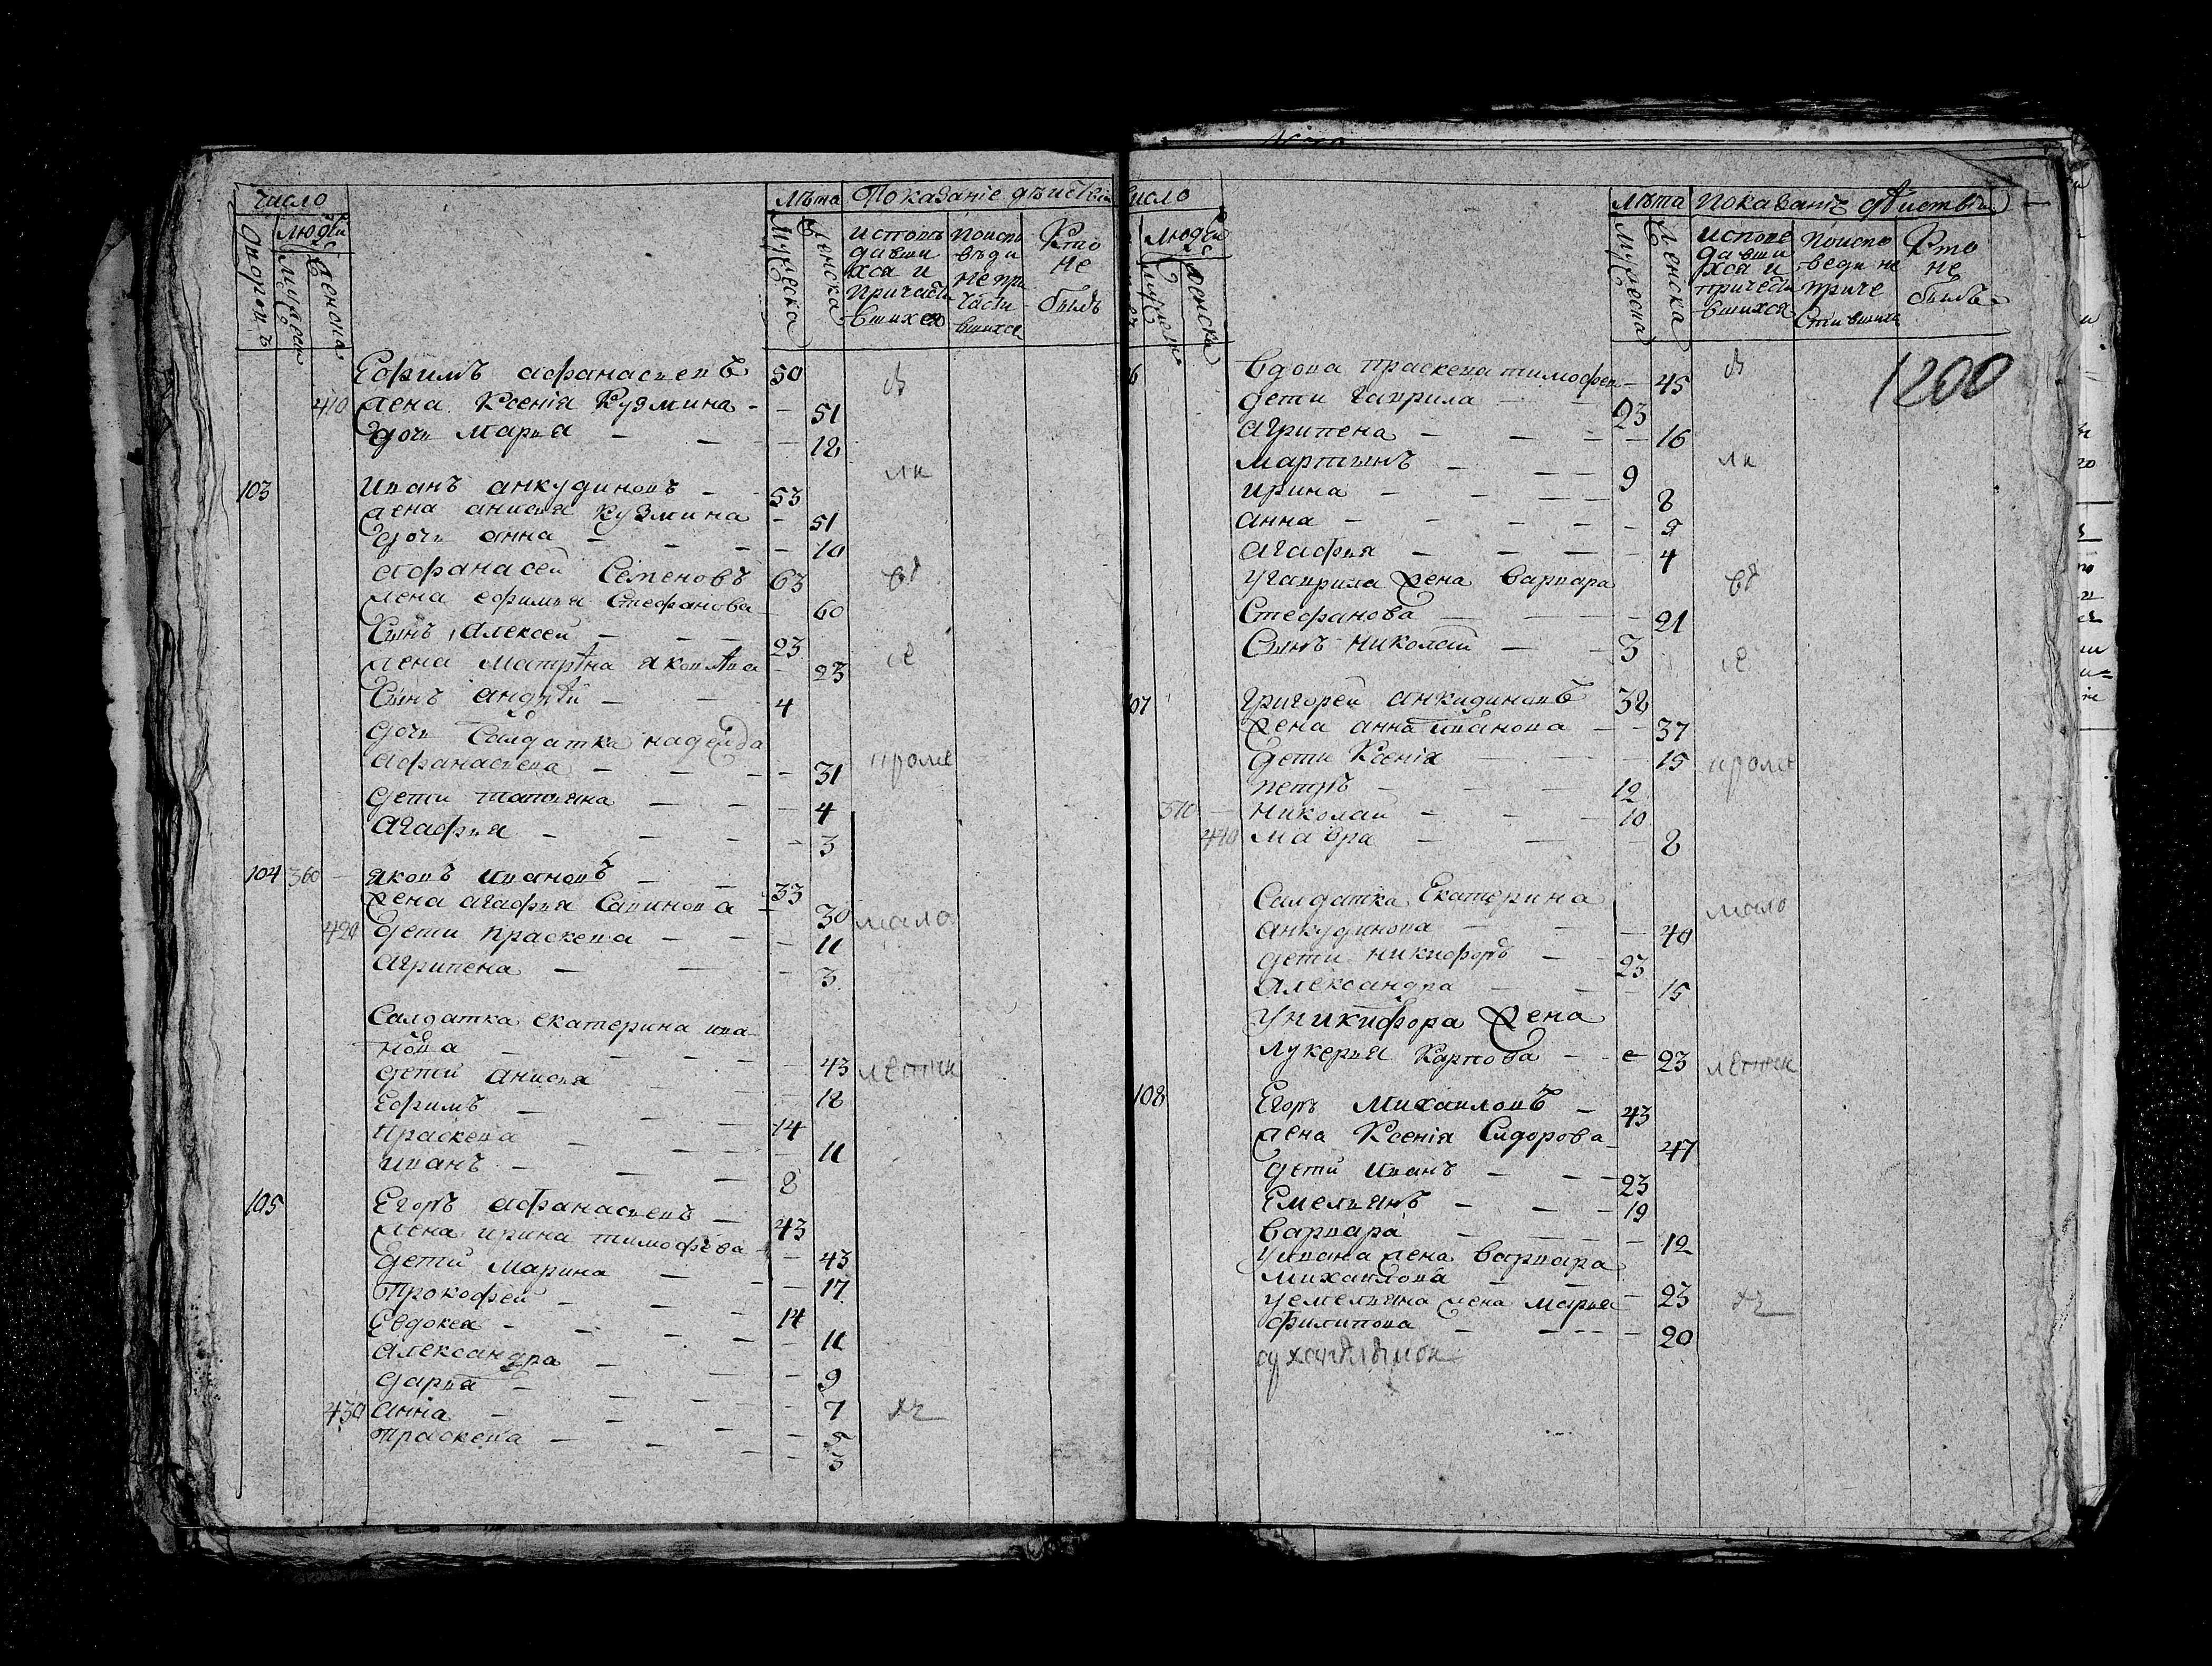 число
Лѣта Показанiе дѣиствi
Людеи
мужеска
женска
исповѣ
давши
хся и
Причасти
вшихся
Поиспо
вѣди
непри
части
вшихся
Кто
не
былъ
Ефимъ афанасьевъ 50
410 жена Ксенiя Кузмина - - 51
дочь Марья - - - 12
103 Иванъ анкудиновъ - - 53
жена анисья Кузмина - 51
дочь анна - - - - 10
афанасеи Семеновъ 63
жена ефимья Стефанова 60
Сынъ Алексеи - - - 23
жена матрѣна яковлѣва - 23
Сынъ андрѣй - - - 4
дочь Салдатка надежда
афанасьева - - - - 31
дети татьяна - - - 4
агафья - - - - 3
104 360 яковъ ивановъ - - 33
жена агафья Савинова - 30
420 дети праскева - - - 11
агрипена - - - 3
Салдатка екатерина ива
нова - - - - 43
дети анисья - - - 12
Ефимъ - - - 14
праскева - - - 11
иванъ - - - 8
105 Егоръ афанасьевъ - 43
жена ирина тимофѣева - 43
дети марина - - - 17
Прокофеи - - - 14
Евдокея - - - - 11
александра - - - 9
дарья - - - - 7
430 анна - - - - 5
праскева - - - - 3
св
ли
въ
се
проме
мало
лѣтни
хъ
число
Лѣта Показанiе дѣиствi
Людеи
мужеска
женска
испове
давши
хся и
причасти
вшихся
Поиспо
веди не
приче
стившихся
Кто
не
былъ
1200
6 Вдова праскева тимофеи - 45
дети гаврила - - 23
агрипена - - - - 16
мартынъ - - - 9
ирина - - - - 8
анна - - - - - 9
агафья - - - - 4
у гаврила жена варвара
Стефанова - - - 21
Сынъ николаи - - 3
107 григореи анкидиновъ 38
жена анна иванова - - 37
дети Ксенiя - - - 15
петръ - - - 12
370 - николаи - - - 10
440 мавра - - - 8
Салдатка Екатерина
анкудинова - - - 40
дети никифоръ - - 23
александра - - - 15
у никифора жена
лукерья Карпова - - 23
108 Егоръ Михаиловъ - 43
жена Ксенiя Сидорова - 47
дети иванъ - - - 23
Емельянъ - - - 19
варвара - - - - 12
у ивана жена варвара
михаилова - - - 23
у емельяна жена марья
филипова - - - - 20
св
ли
въ
се
проме
мало
лѣтни
хъ